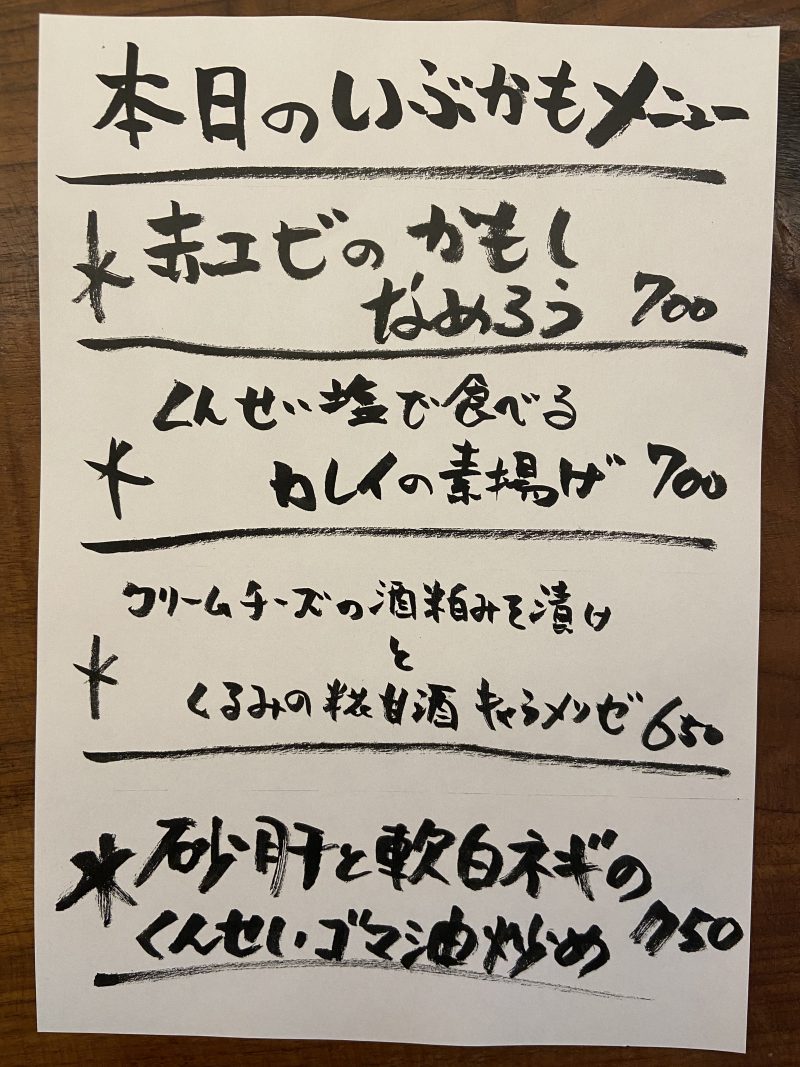 本日のいぶかもメニュー
* 赤エビのかもし
なめろう 700
くんせい塩で食べる
* カレイの素揚げ 700
クリームチーズの酒粕みそ漬け
* と
くるみの糀甘酒キャラメリゼ 650
* 砂肝と軟白ネギの
くんせいゴマ油炒め 750